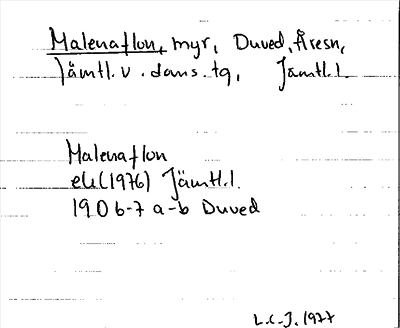 Malenaflon, myr, Duved, Åresn,
Jämtl. v. doms. tg, Jämtl. l.
Malenaflon
ek (1976) Jämtl. l.
19D 6-7 a-b Duved
L.C-J. 1977